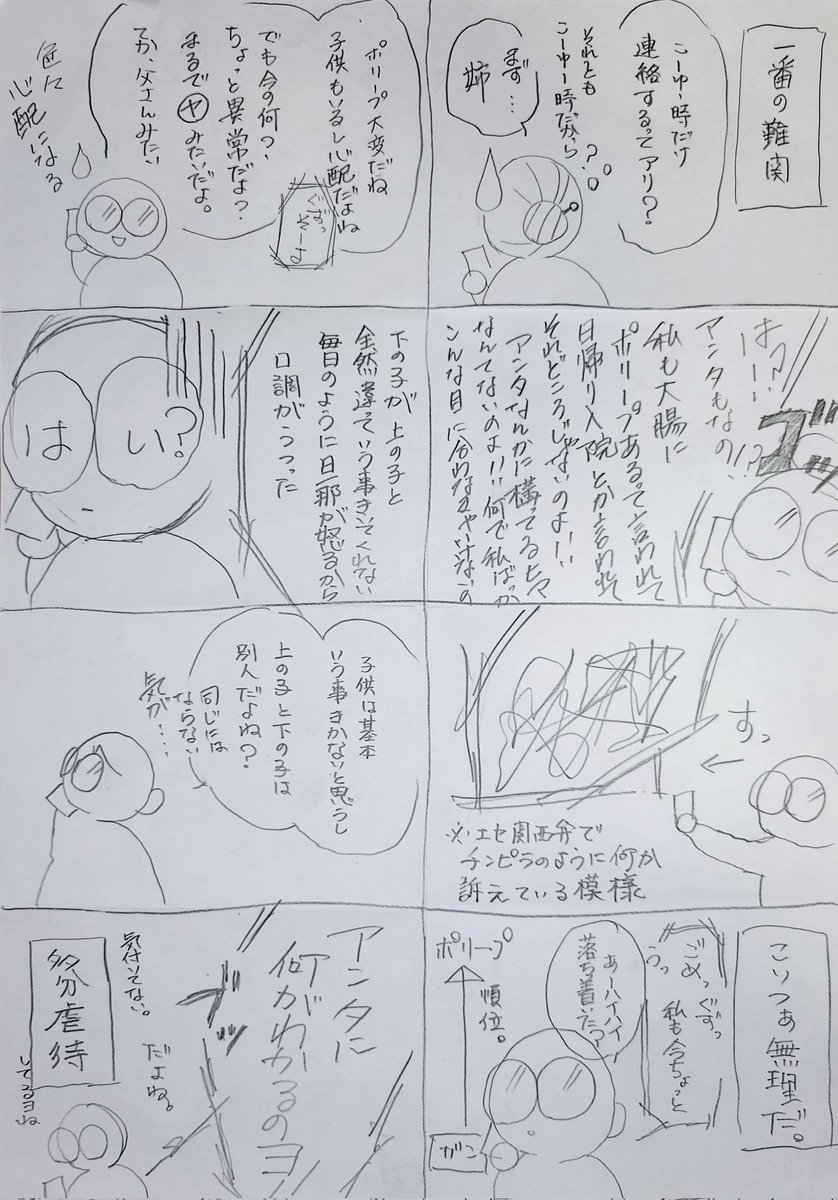 一番の難関
こーゆー時だけ
連絡するってアリ?
それとも
こーゆー時だから?
まず…
姉
はっ?
はーい?
アンタもなの!?
私も大腸に
ポリープあるって言われて
日帰り入院とか言われて
それどころじゃないのよ!!
アンタなんかに構ってるヒマ
なんてないのよ!!何で私ばっか
こんな目に合わなきゃいけないの
すっ
※エセ関西弁で
チンピラのように何か
訴えている模様
こいつぁ無理だ。
ごめっぐずっ
うっ
私も今ちょっと
あーハイハイ
落ち着いた?
ポリープ
順位。
ガン
ポリープ大変だね
子供もいるし心配だよね
でも今の何?
ちょっと異常だよ?
まるでヤみたいだよ。
てか、父さんみたい
ぐすっ
そーよ
色々
心配になる
下の子が上の子と
全然違っていう事きいてくれない
毎日のように旦那が怒るから
口調がうつった
はい?
子供は基本
いう事きかないと思うし
上の子と下の子は
別人だよね?
同じには
ならない
気が…
アンタに
何がわかるのヨ
だよね。
気付いてない。
多分虐待
してるヨね